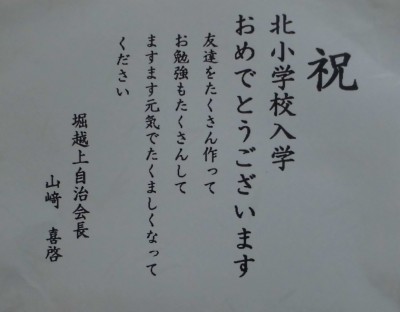 祝
北小学校入学
おめでとうございます
友達をたくさん作って
お勉強もたくさんして
ますます元気でたくましくなって
ください
堀越上自治会長
山﨑 喜啓